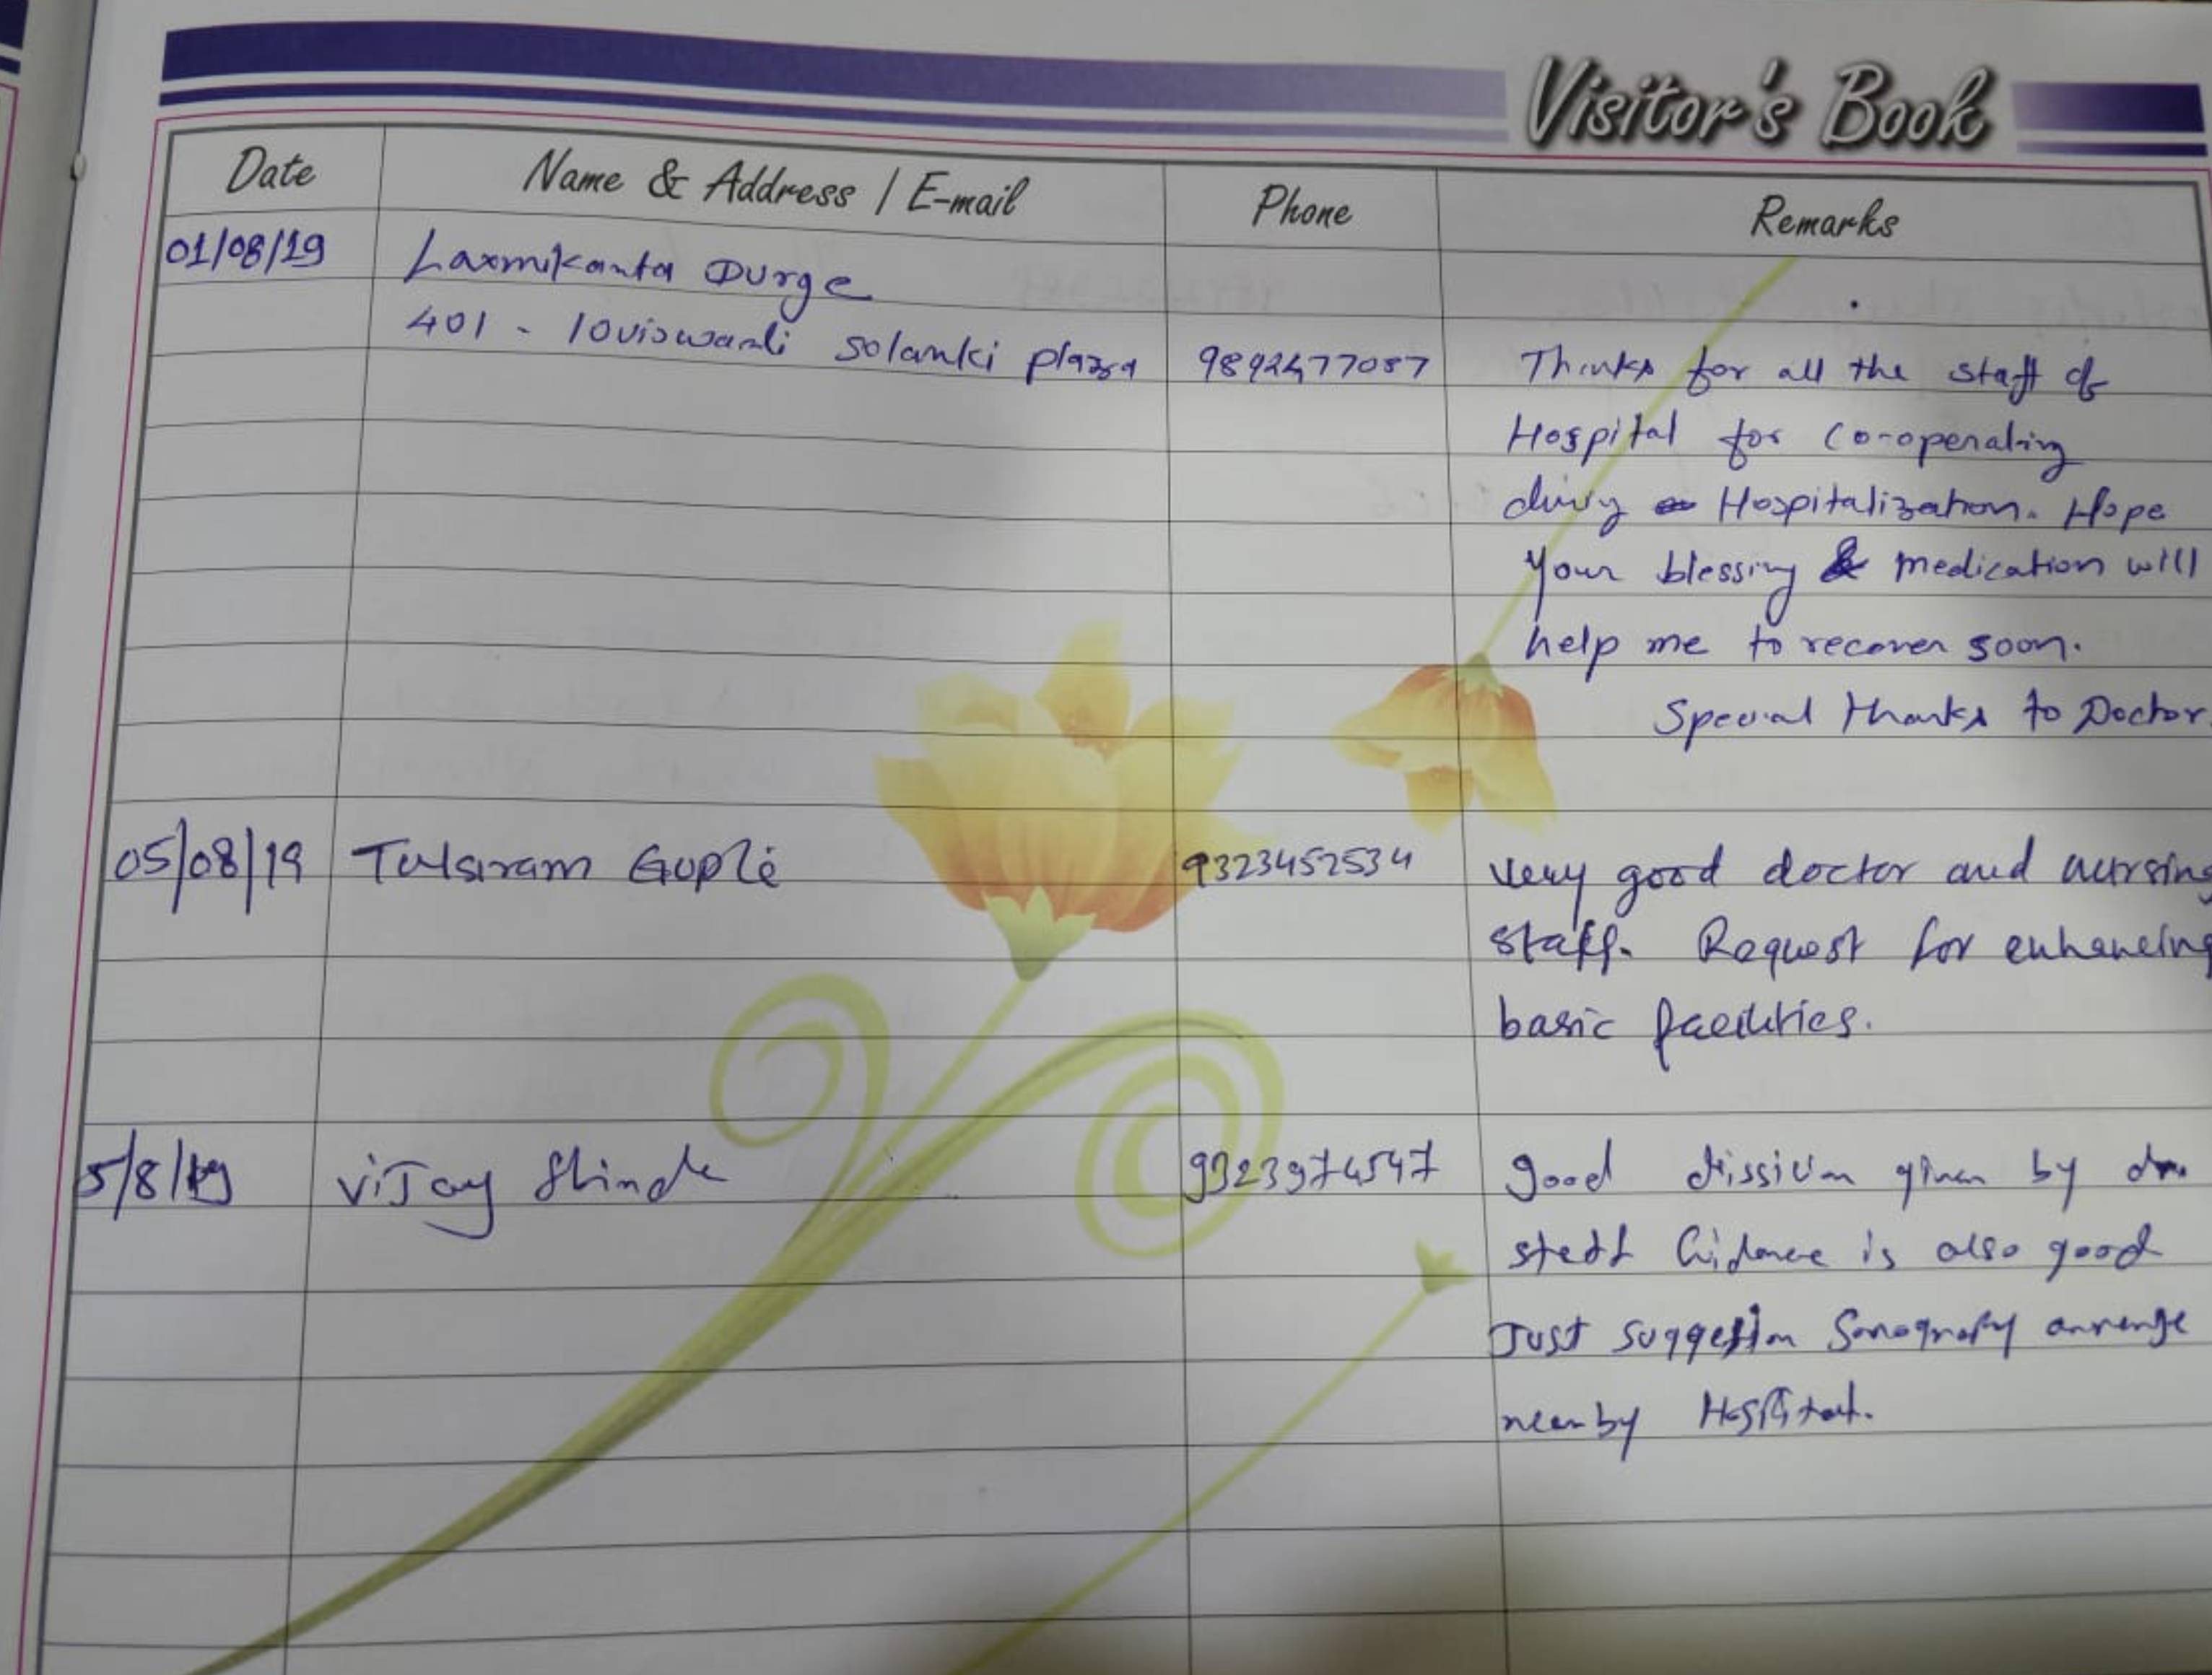 Visitor's Book
Date Name & Address / E-mail Phone Remarks
01/08/19 Laxmikanta Durge
401 - solanki plaza 9892477087 Thinks for all the staff of
Hospital for co-operating
Hospitalization. Hope
your blessing & medication will
help me to recover soon.
Special thanks to Doctor
05/08/19 Tulsiram Gupte 9323452534 very good doctor and nursing
staff. Request for enhancing
basic facilities.
5/8/19 Vijay Shinde 9323974547 good given by dr.
is also good
Just suggestion Sonography arrenge
near by Hospital.